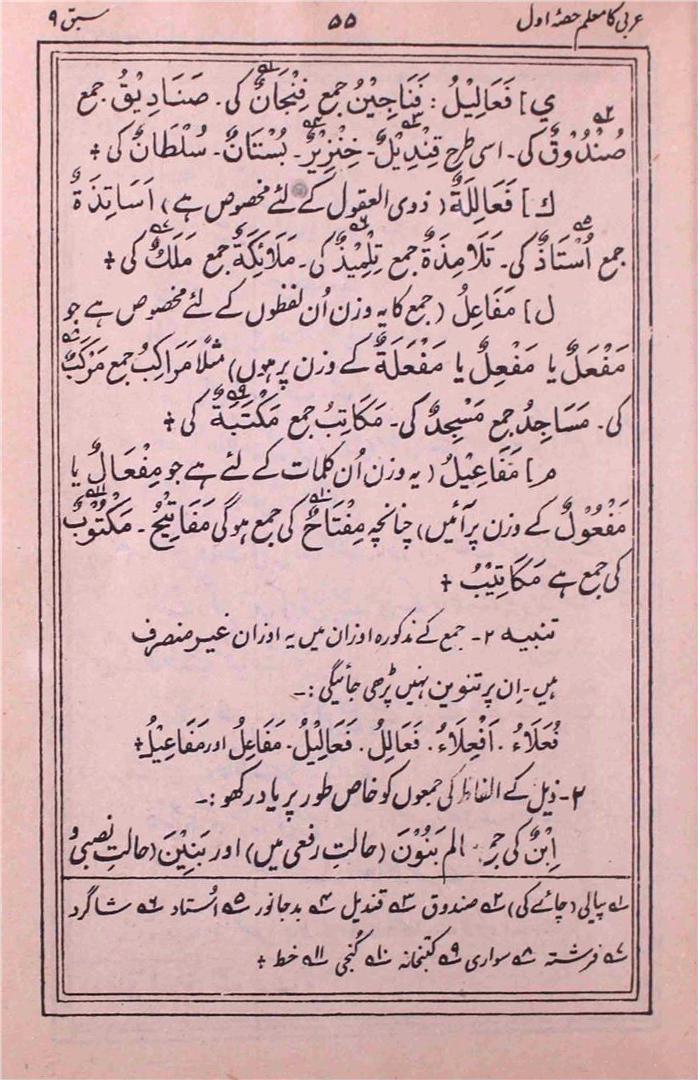 عربی کا معلم حصۂ اول ۵۵ سبق ۹
ی] فَعَالِیْلُ : فَنَاجِیْنُ جمع فِنْجَانٌ۱؎ کی۔ صَنَادِیْقُ جمع
صُنْدُوْقٌ۲؎ کی۔ اسی طرح قِنْدِیْلٌ۳؎۔ خِنْزِیْرٌ۴؎۔ بُسْتَانٌ۔ سُلْطَانٌ کی +
ك] فَعَالِلَةٌ (ذوی العقول کے لئے مخصوص ہے) اَسَاتِذَةٌ
جمع اُسْتَاذٌ۵؎ کی۔ تَلَامِذَةٌ جمع تِلْمِیْذٌ۶؎ کی۔ مَلَائِکَةٌ جمع مَلَكٌ۷؎ کی +
ل] مَفَاعِلُ (جمع کا یہ وزن اُن لفظوں کے لئے مخصوص ہے جو
مَفْعَلٌ یا مَفْعِلٌ یا مَفْعَلَةٌ کے وزن پر ہوں) مثلًا مَرَاکِبُ جمع مَرْکَبٌ۸؎
کی۔ مَسَاجِدُ جمع مَسْجِدٌ کی۔ مَکَاتِبُ جمع مَکْتَبَةٌ۹؎ کی +
م] مَفَاعِیْلُ (یہ وزن اُن کلمات کے لئے ہے جو مِفْعَالٌ یا
مَفْعُوْلٌ کے وزن پر آئیں) چنانچہ مِفْتَاحٌ۱۰؎ کی جمع ہوگی مَفَاتِیْحُ۔ مَکْتُوْبٌ۱۱؎
کی جمع ہے مَکَاتِیْبُ +
تنبیہ ۲۔ جمع کے مذکورہ اوزان میں یہ اوزان غیر منصرف
ہیں۔ اِن پر تنوین نہیں پڑھی جائیگی :۔
فُعَلَاءُ۔ اَفْعِلَاءُ۔ فَعَالِلُ۔ فَعَالِیْلُ۔ مَفَاعِلُ اور مَفَاعِیْلُ +
۲۔ ذیل کے الفاظ کی جمعوں کو خاص طور پر یاد رکھو :۔
اِبْنٌ کی جمع سالم بَنُوْنَ (حالتِ رفعی میں) اور بَنِیْنَ (حالتِ نصبی و
۱؎ پیالی (چائے کی) ۲؎ صندوق ۳؎ قندیل ۴؎ بد جانور ۵؎ اُستاد ۶؎ شاگرد
۷؎ فرشتہ ۸؎ سواری ۹؎ کتبخانہ ۱۰؎ کُنجی ۱۱؎ خط +